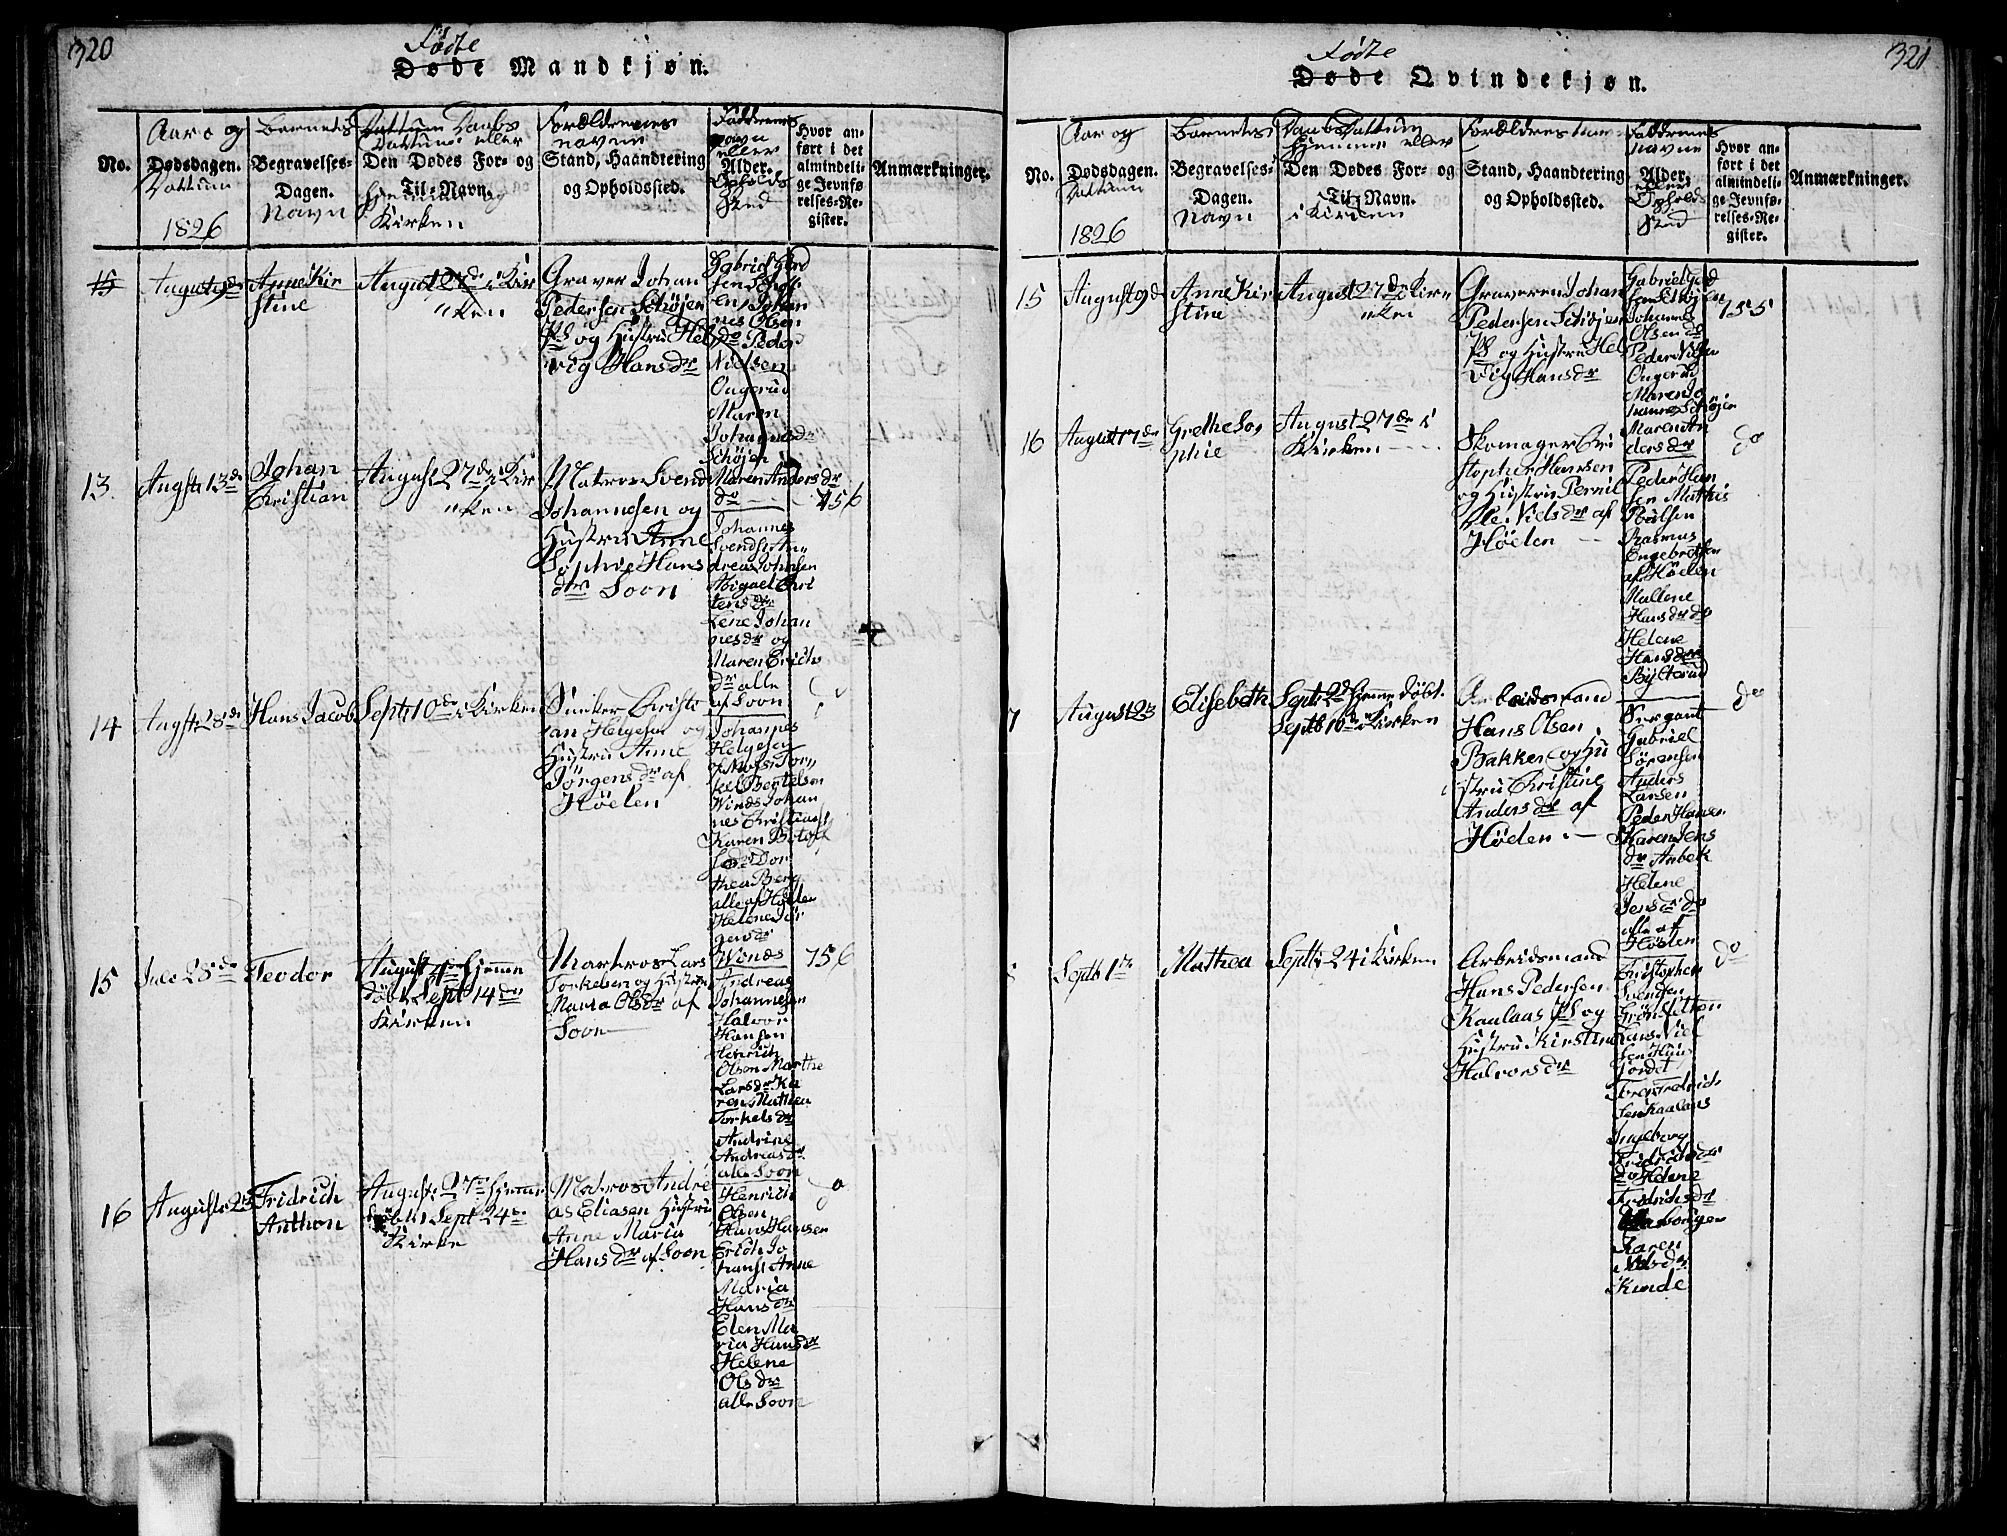 320
Fødte
Døde Mandkjøn.
No.
Aar og
Dødsdagen.
Dattum
1826
Barnets
Begravelses-
Dagen.
Navn
Dattum Daabs
Dattum eller
Den Dødes For- og
Til-Navn.
Hjemme og
Kirken
Forældrenes
navne
Stand, Haandtering
og Opholdssted.
Faddernes
navn
eller
Alder.
Opholds
Sted
Hvor an-
ført i det
almindeli-
ge Jevnfø-
relses-Re-
gister.
Anmærkninger.
15
August 9de
Anne Kir
stine
August 27de i Kir
ken
Graver Johan
Pedersen Schøjen
PS og Hustru Hel
vig Hansdr
Gabriel Gud
sen Schøj
en Johan
nes Olsen
do Peder
Nielsen
Ongerud
Maren
Johannesdr
Schøjen
Maren Andersdr
do
13.
Augst 13de
Johan
Christian
August 27de i Kir
ken
Matros Svend
Johannesen og
Hustru Anne
Sophie Hans
dtr Soon
Johannes
Svends An
dreas Johnsen
Abigael Chri
tensdr
Lene Johan
nesdr og
Maren Erichs
dr alle
af Soon
156
14
Augst 28de
Hans Jacob
Septb 10de i Kirken
Sneker Christi
an Helgesen og
Hustru Anne
Jørgensdr af
Höelen
Johannes
Helgesen
Bentelsen
Winds Johan
nes Christians
Karen
thea Berg
alle af Hølen
Helene Jør
gensdr
Winds
15
Jule 28de
Teodor
August 4de Hjemme
døbt Sept 14de
Kirken
Martros Lars
Torkelsen og Hustru
Maria Olsdr af
Soon
Andreas
Johannesen
Halvor
Hansen
Henrich
Olsen Marthe
Larsdr Ka
ren Mathea
Torkelsdr
Andrine
Andreasdr
alle Soon
156
16
August 23
Fridrich
Anthon
August 27de Hjemme
døbt Sept 24de
Kirke
Matros André
as Eliasen Hustru
Anne Maria
Hansdr af Soon
Henrich
Olsen
Hans Hansen
Erich Jo
hans Anne
Maria
Hansdr
Elen Ma
ria Hansdr
Helene
Olsdr
alle Soon
do
321
Fødte
Døde Qvindekjøn.
No.
Aar og
Dødsdagen.
Dattum
1826
Barnetes
Begravelses-
Dagen.
Navn
Daabs Dattum
Hjemme eller
Den Dødes For- og
Til-Navn.
i Kirken
Forældrenes navne
Stand, Haandtering
og Opholdssted.
Faddernes
navne
Alder.
eller
Opholds
Sted
Hvor an-
ført i det
almindeli-
ge Jevnfø-
relses-Re-
gister.
Anmærkninger.
15
August 9d
Anne Kir
stine
August 27de Kir
ken
Graveren Johan
Pedersen Schøjen
PS og Hustru Hel
vig Hansdr
Gabriel Gud
sen Schøjen
Johannes
Olsen do
Peder Nilsen
Ongerud
Maren Jo
hannes Schøjen
Maren An
dersdr
155
16
August 17de
Grethe So
phie
August 27de i
Kirken
Skomager Cri
stopher Hansen
og Hustru Pernil
le Nielsdr af
Höelen
Peder Han
sen Mathis
Povlsen
Rasmus
Engebretsen
af Höelen
Mallene
Hansdr do
Helene
Hansdr
Bylterud
do
7
August 23
Elisebeth
Septb 2d Hjemme døbt
Septb 10de i Kirken
Arbeidsmand
Hans Olsen
Bakken og Hu
stru Christine
Andersdr af
Höelen
Sergant
Gabriel
Sörensen
Anders
Larsen
Peder Hansen
Karen Jens
dr Anbek
Helene
Jensdr do
alle af
Höelen
do
Septb 1de
Mathea
Septb 24 i Kirken
Arbeidsmand
Hans Pedersen
Kaalaas PS og
Hustru Kirstine
Halvorsdr
Christopher
Svendsen
Grönsletten
Lars Niel
sen Huus
jordet
Tore Fredrich
sen Kaalaas
Ingeborg
Fridrichsdr
do Helene
Fredrichsdr
Karen
Nilsdr
Kinde
do